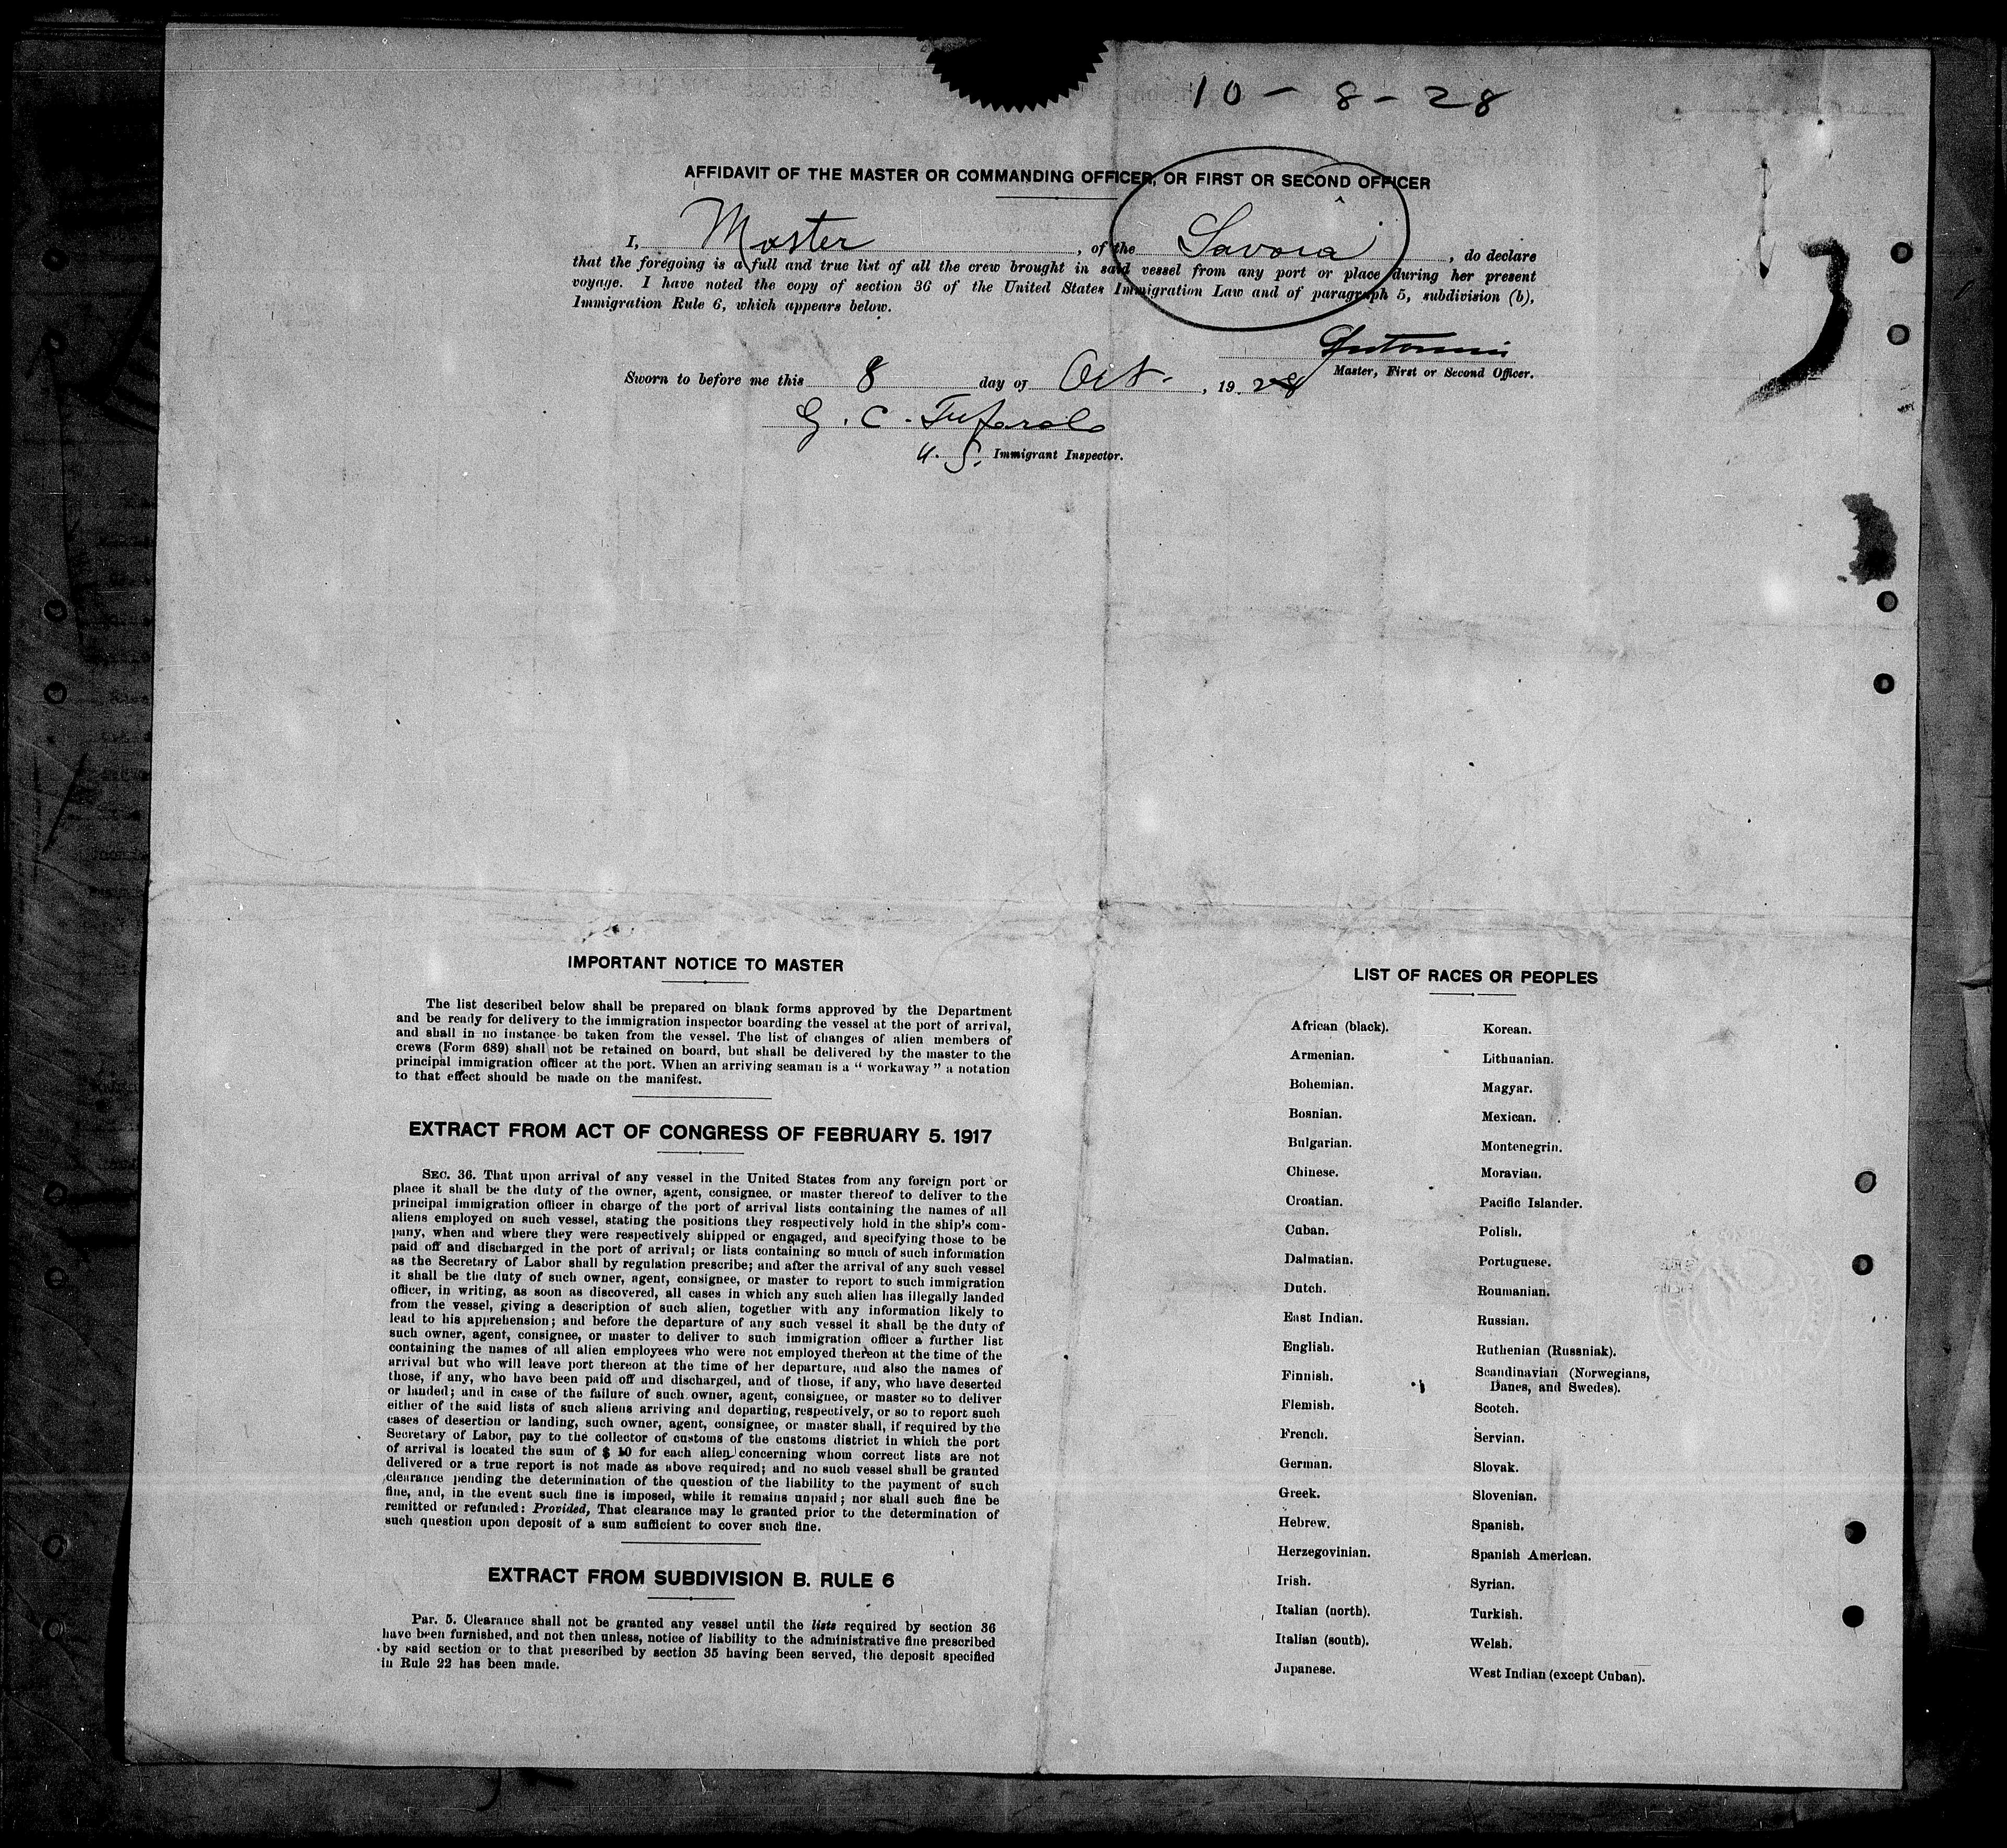 10-8-28
AFFIDAVIT OF THE MASTER OR COMMANDING OFFICER, OR FIRST OR SECOND OFFICER
I, Master, of the Savoia, do declare
that the foregoing is a full and true list of all the crew brought in said vessel from any port or place during her present
voyage. I have noted the copy of section 36 of the United States Immigration Law and of paragraph 5, subdivision (b),
Immigration Rule 6, which appears below.
Master, First or Second Officer.
Sworn to before me this 8 day of Oct., 1928
G. C.
U. S. Immigrant Inspector.
IMPORTANT NOTICE TO MASTER
The list described below shall be prepared on blank forms approved by the Department
and be ready for delivery to the immigration inspector boarding the vessel at the port of arrival,
and shall in no instance be taken from the vessel. The list of changes of alien members of
crews (Form 689) shall not be retained on board, but shall be delivered by the master to the
principal immigration officer at the port. When an arriving seaman is a "workaway" a notation
to that effect should be made on the manifest.
EXTRACT FROM ACT OF CONGRESS OF FEBRUARY 5. 1917
SEC. 36. That upon arrival of any vessel in the United States from any foreign port or
place it shall be the duty of the owner, agent, consignee, or master thereof to deliver to the
principal immigration officer in charge of the port of arrival lists containing the names of all
aliens employed on such vessel, stating the positions they respectively hold in the ship's com-
pany, when and where they were respectively shipped or engaged, and specifying those to be
paid off and discharged in the port of arrival; or lists containing so much of such information
as the Secretary of Labor shall by regulation prescribe; and after the arrival of any such vessel
it shall be the duty of such owner, agent, consignee, or master to report to such immigration
officer, in writing, as soon as discovered, all cases in which any such alien has illegally landed
from the vessel, giving a description of such alien, together with any information likely to
lead to his apprehension; and before the departure of any such vessel it shall be the duty of
such owner, agent, consignee, or master to deliver to such immigration officer a further list
containing the names of all alien employees who were not employed thereon at the time of the
arrival but who will leave port thereon at the time of her departure, and also the names of
those, if any, who have been paid off and discharged, and of those, if any, who have deserted
or landed; and in case of the failure of such owner, agent, consignee, or master so to deliver
either of the said lists of such aliens arriving and departing, respectively, or so to report such
cases of desertion or landing, such owner, agent, consignee, or master shall, if required by the
Secretary of Labor, pay to the collector of customs of the customs district in which the port
of arrival is located the sum of $ 10 for each alien concerning whom correct lists are not
delivered or a true report is not made as above required; and no such vessel shall be granted
clearance pending the determination of the question of the liability to the payment of such
fine, and, in the event such fine is imposed, while it remains unpaid; nor shall such fine be
remitted or refunded: Provided, That clearance may le granted prior to the determination of
such question upon deposit of a sum sufficient to cover such fine.
EXTRACT FROM SUBDIVISION B. RULE 6
Par. 5. Clearance shall not be granted any vessel until the lists required by section 36
have been furnished, and not then unless, notice of liability to the administrative fine prescribed
by said section or to that prescribed by section 35 having been served, the deposit specified
in Rule 22 has been made.
LIST OF RACES OR PEOPLES
African (black).
Armenian.
Bohemian.
Bosnian.
Bulgarian.
Chinese.
Croatian.
Cuban.
Dalmatian.
Dutch.
East Indian.
English.
Finnish.
Flemish.
French.
German.
Greek.
Hebrew.
Herzegovinian.
Irish.
Italian (north).
Italian (south).
Japanese.
Korean.
Lithuanian.
Magyar.
Mexican.
Montenegrin.
Moravian.
Pacific Islander.
Polish.
Portuguese.
Roumanian.
Russian.
Ruthenian (Russniak).
Scandinavian (Norwegians,
Danes, and Swedes).
Scotch.
Servian.
Slovak.
Slovenian.
Spanish.
Spanish American.
Syrian.
Turkish.
Welsh.
West Indian (except Cuban).